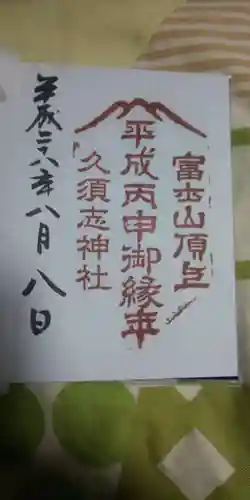 富士山頂上
平成丙申御縁年
久須志神社
平成二八年八月八日